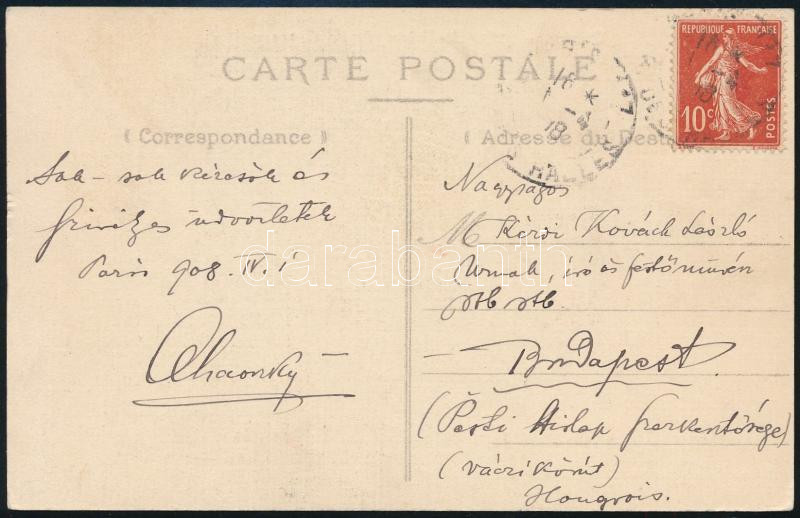 CARTE POSTALE
( Correspondance )
Sok - sok kézcsók és
szivélyes üdvözletek
Paris 908. IV. 1
( Adresse du Dest
REPUBLIQUE FRANÇAISE
10c
POSTES
HALLE
Nagyságos
M Kézdi Kovách László
Urnak, író és festőművész
stb stb.
Budapest.
(Pesti Hirlap szerkentősége)
(váczi körút)
Hongrois.
darabanth